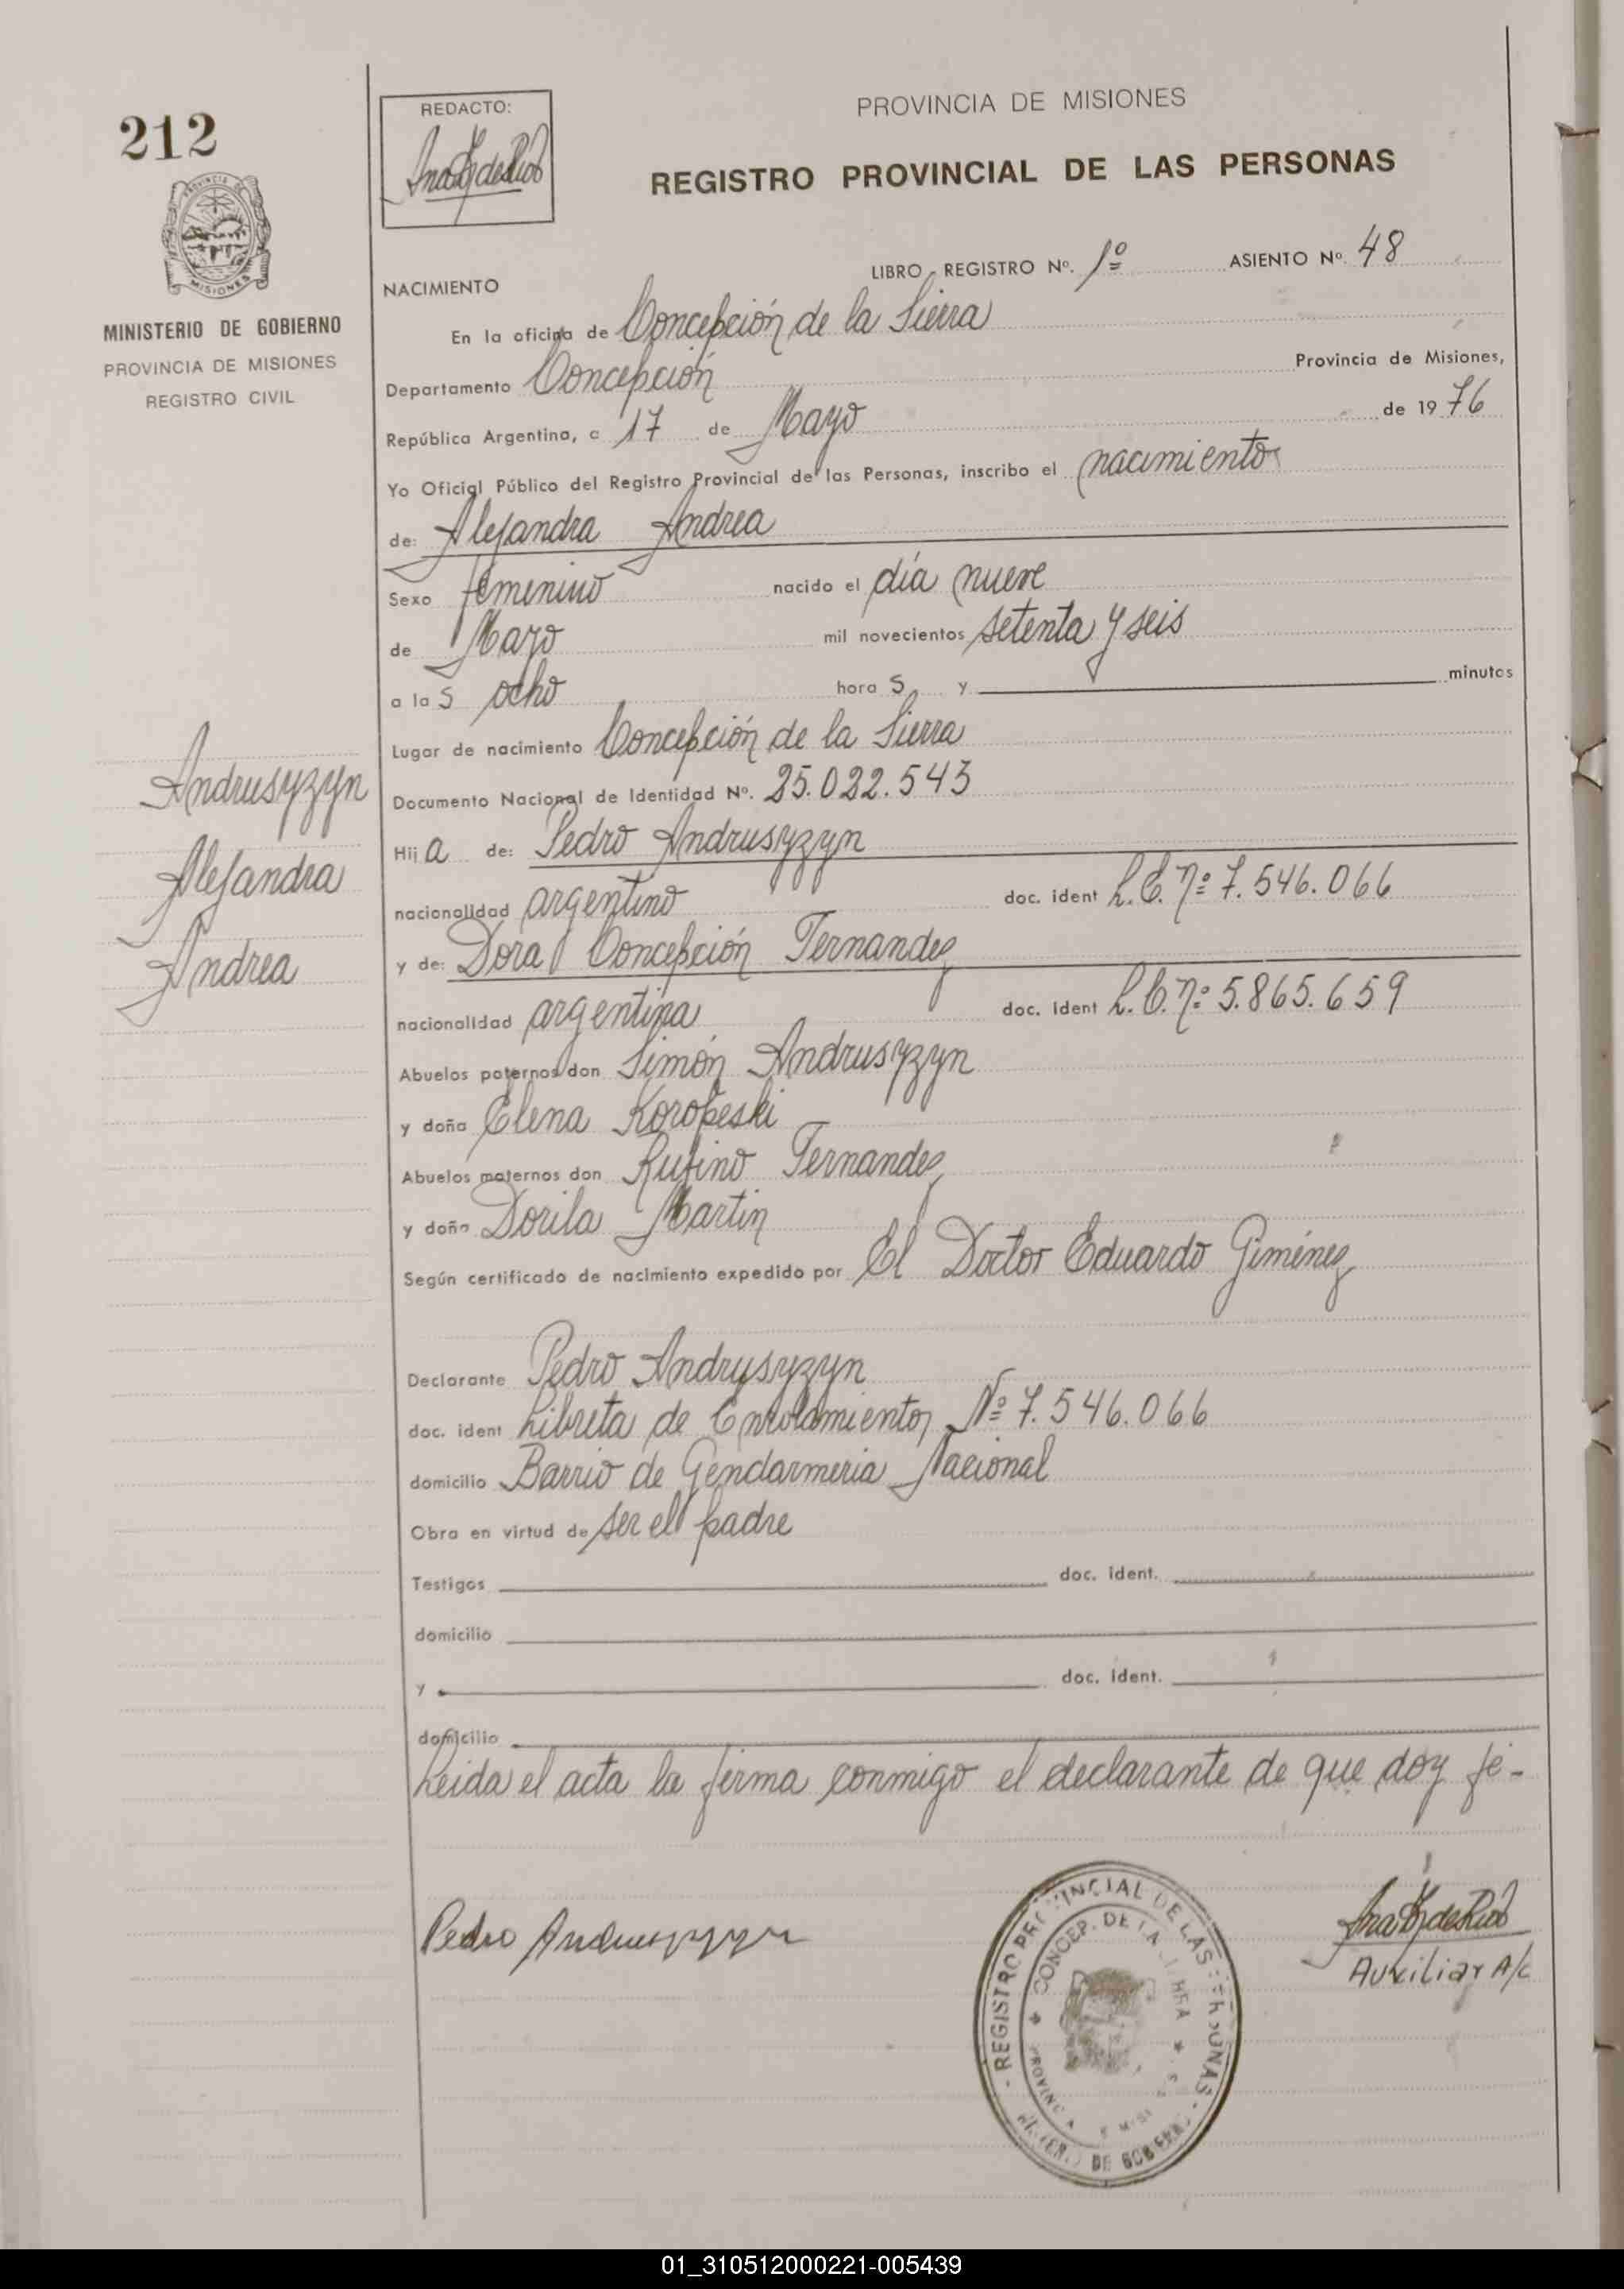 212
REDACTO:
PROVINCIA DE MISIONES
REGISTRO PROVINCIAL DE LAS PERSONAS
PROVINCIA DE
MISIONES
MINISTERIO DE GOBIERNO
PROVINCIA DE MISIONES
REGISTRO CIVIL
LIBRO REGISTRO Nº. 1º ASIENTO Nº. 48
NACIMIENTO
En la oficina de Concepción de la Sierra
Departamento Concepción Provincia de Misiones,
República Argentina, a 17 de Mayo de 1976
Yo Oficial Público del Registro Provincial de las Personas, inscribo el nacimiento
de: Alejandra Andrea
Sexo femenino nacido el día nueve
de Mayo mil novecientos setenta y seis
a las ocho horas y minutos
Lugar de nacimiento Concepción de la Sierra
Documento Nacional de Identidad Nº. 25.022.543
Hija de: Pedro Andrusyzyn
nacionalidad argentino doc. ident L.E. nº 7.546.066
y de: Dora Concepción Fernandez
nacionalidad argentina doc. ident L.C. nº 5.865.659
Abuelos paternos don Simón Andrusyzyn
y doña Elena Korobeski
Abuelos maternos don Rufino Fernandez
y doña Dorila Martin
Según certificado de nacimiento expedido por El Doctor Eduardo Giménez
Declarante Pedro Andrusyzyn
doc. ident Libreta de Enrolamiento, Nº 7.546.066
domicilio Barrio de Gendarmeria Nacional
Obra en virtud de ser el padre
Testigos doc. ident.
domicilio
y doc. ident.
domicilio
Leida el acta la firma conmigo el declarante de que doy fé-
Andrusyzyn
Alejandra
Andrea
Pedro Andrusyzyn
REGISTRO PROVINCIAL DE LAS PERSONAS
CONCEP. DE LA
DE GOBIERNO
Auxiliar A/c
01_310512000221-005439